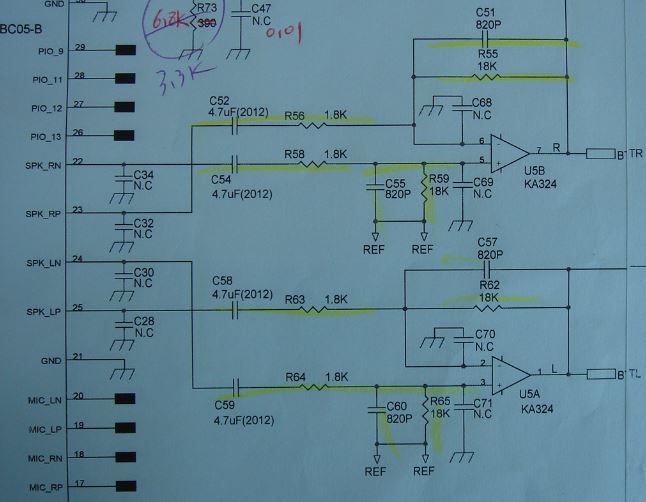 GND 30
BC05-B
6.8K
R73
390
3.3K
C47
N.C
0.01
PIO_9 29
PIO_11 28
PIO_12 27
PIO_13 26
SPK_RN 22
SPK_RP 23
SPK_LN 24
SPK_LP 25
GND 21
MIC_LN 20
MIC_LP 19
MIC_RN 18
MIC_RP 17
C34
N.C
C32
N.C
C30
N.C
C28
N.C
C52
4.7uF(2012)
R56 1.8K
R58 1.8K
C54
4.7uF(2012)
C51
820P
R55
18K
C68
N.C
6
5
7 R
U5B
KA324
B' TR
C55
820P
R59
18K
C69
N.C
REF REF
C58
4.7uF(2012)
R63 1.8K
R64 1.8K
C59
4.7uF(2012)
C57
820P
R62
18K
C70
N.C
2
3
1 L
U5A
KA324
B' TL
C60
820P
R65
18K
C71
N.C
REF REF